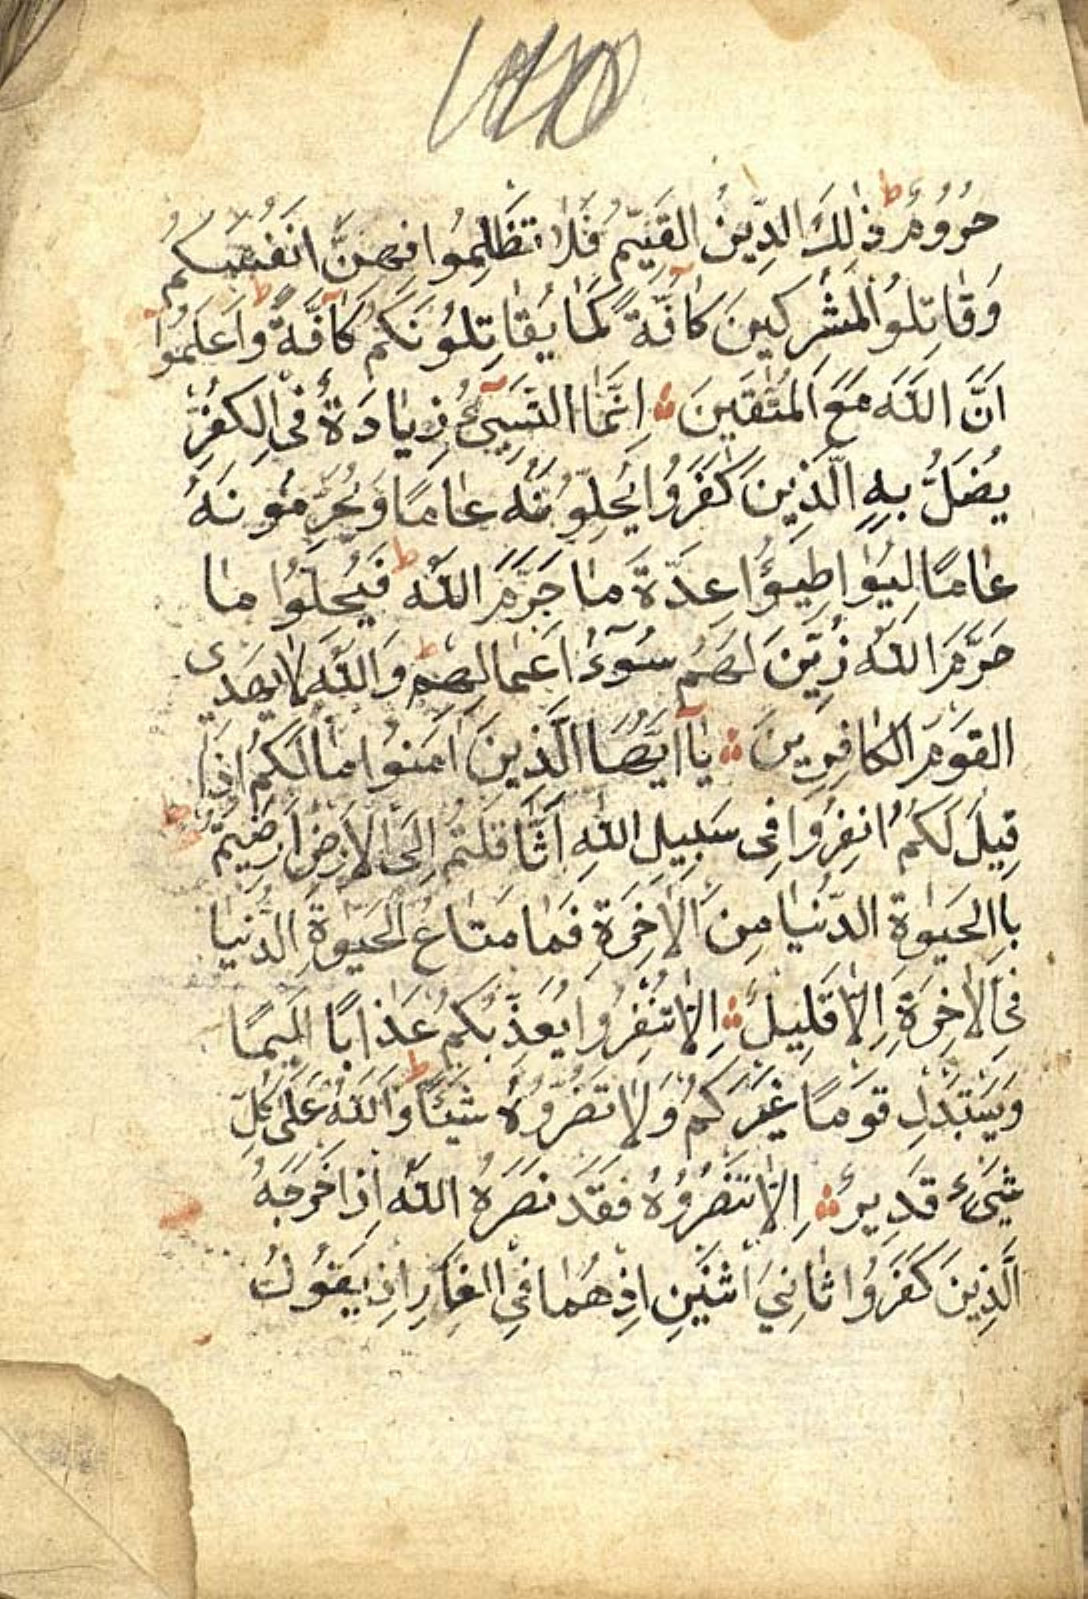 حُرُومٌ ذٰلِكَ الدِّينُ القَيِّمُ فَلَا تَظْلِمُوا فِيهِنَّ انَفُسَكُم
وَقَاتِلُوا المُشْرِكِينَ كَآفَّةً كَمَا يُقَاتِلُونَكُمْ كَآفَّةً وَاعْلَمُوا
اَنَّ اللّٰهَ مَعَ المُتَّقِينَ ۞ اِنَّمَا النَّسِيۤءُ زِيَادَةٌ فِى الكُفْرِ
يُضَلُّ بِهِ الَّذِينَ كَفَرُوا يُحِلُّونَهُ عَامًا وَيُحَرِّمُونَهُ
عَامًا لِيُوَاطِئُوا عِدَّةَ مَا حَرَّمَ اللّٰهُ فَيُحِلُّوا مَا
حَرَّمَ اللّٰهُ زُيِّنَ لَهُمْ سُوۤءُ اَعْمَالِهِمْ وَاللّٰهُ لَا يَهْدِى
القَوْمَ الكَافِرِينَ ۞ يَاۤ اَيُّهَا الَّذِينَ اٰمَنُوا مَا لَكُمْ اِذَا
قِيلَ لَكُمُ انْفِرُوا فِى سَبِيلِ اللّٰهِ اثَّاقَلْتُمْ اِلَى الْاَرْضِ اَرَضِيتُمْ
بِاالحَيٰوةِ الدُّنْيَا مِنَ الْاٰخِرَةِ فَمَا مَتَاعُ الحَيٰوةِ الدُّنْيَا
فِى الْاٰخِرَةِ اِلَّا قَلِيلٌ ۞ اِلَّا تَنْفِرُوا يُعَذِّبْكُمْ عَذَابًا اَلِيمًا
وَيَسْتَبْدِلْ قَوْمًا غَيْرَكُمْ وَلَا تَضُرُّوهُ شَيْئًا وَاللّٰهُ عَلٰى كُلِّ
شَىْءٍ قَدِيرٌ ۞ اِلَّا تَنْصُرُوهُ فَقَدْ نَصَرَهُ اللّٰهُ اِذْ اَخْرَجَهُ
الَّذِينَ كَفَرُوا ثَانِيَ اثْنَيْنِ اِذْ هُمَا فِي الغَارِ اِذْ يَقُولُ